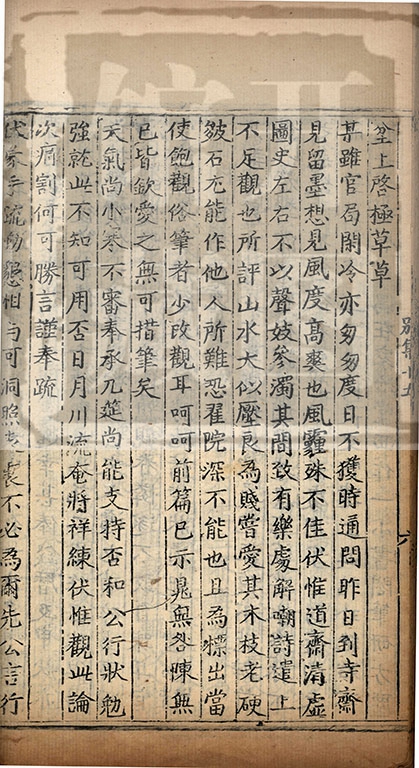 坐上啓極草草
某雖官局閑冷亦匆匆度日不獲時通問昨日到寺齋
見留墨想見風度高爽也風霾殊不佳伏惟道齋清虛
圖史左右不以聲妓參濁其間致有樂處解嘲詩遣上
不足觀也所評山水大似壓良為賤嘗愛其木枝老硬
皴石尤能作他人所難恐翟院深不能也且為標出當
使飽觀俗筆者少改觀耳呵呵前篇已示晁無咎陳無
已皆欽愛之無可措筆矣
天氣尚小寒不審奉承几筵尚能支持否和公行狀勉
強就此不知可用否日月川流奄將祥練伏惟觀此論
次痛割何可勝言謹奉疏
伏承手疏
不必為爾先公言行
別集十五
六